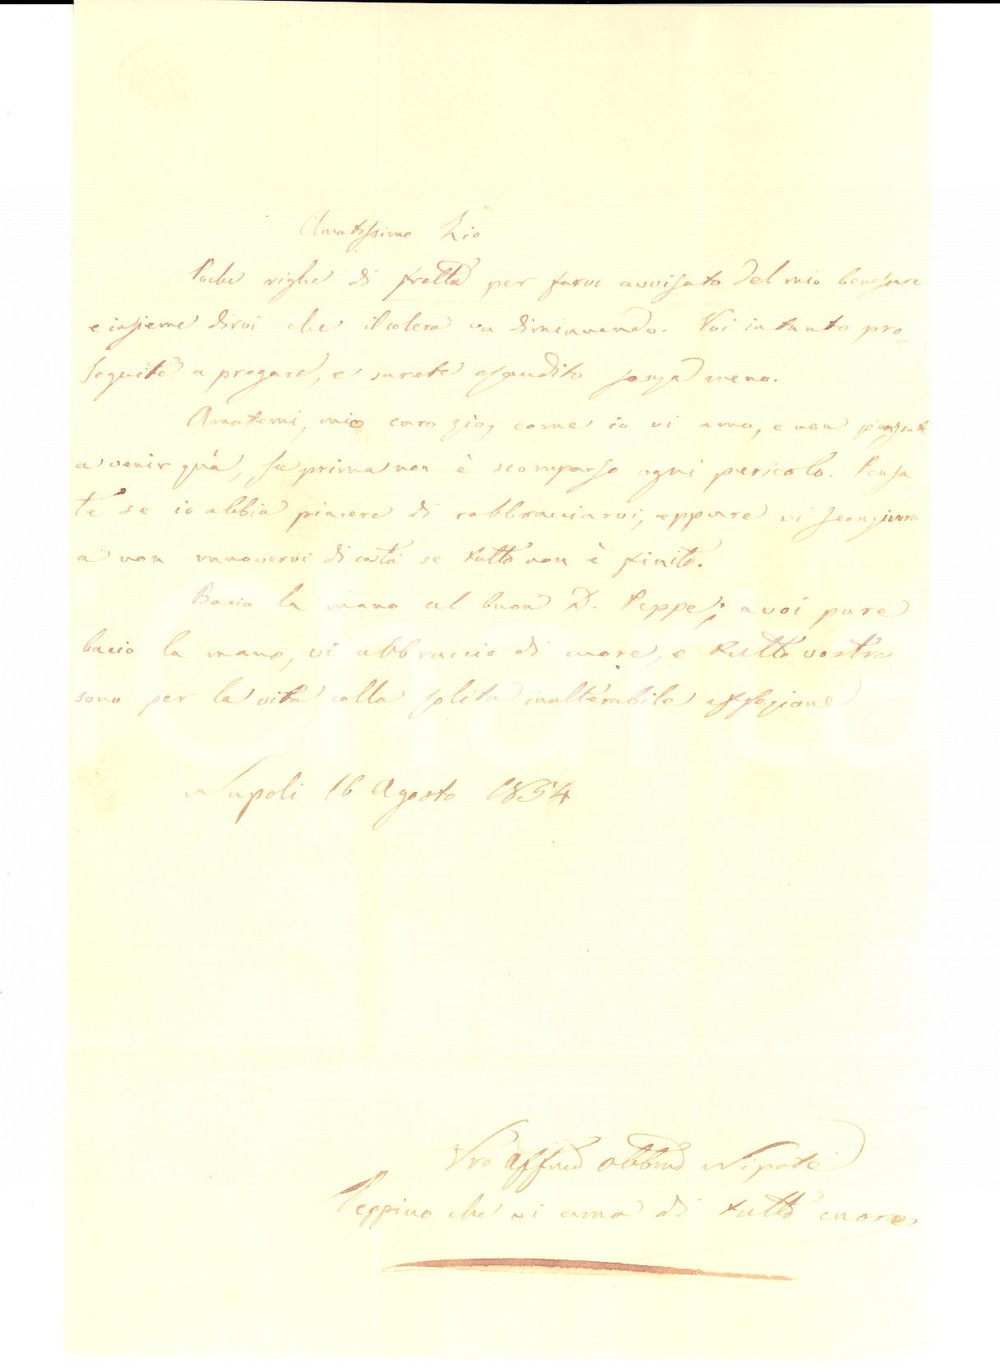 Amatissimo Zio
Poche righe di fretta per farvi avvisato del mio benessere
e insieme dirvi che il colera va diminuendo. Voi intanto pro-
seguite a pregare, e sarete esaudito senza meno.
Amatemi, mio caro zio, come io vi amo, e non pensate
a venir quà, se prima non è scomparso ogni pericolo. Pensa-
te se io abbia piacere di rabbracciarvi, eppure vi scongiuro
a non muovervi di costà se tutto non è finito.
Bacio la mano al buon D. Peppe; a voi pure
bacio la mano, vi abbraccio di cuore, e tutto vostro
sono per la vita colla solita inalterabile affezione
Napoli 16 Agosto 1854
Vro affmo obbmo Nipote
Peppino che vi ama di tutto cuore